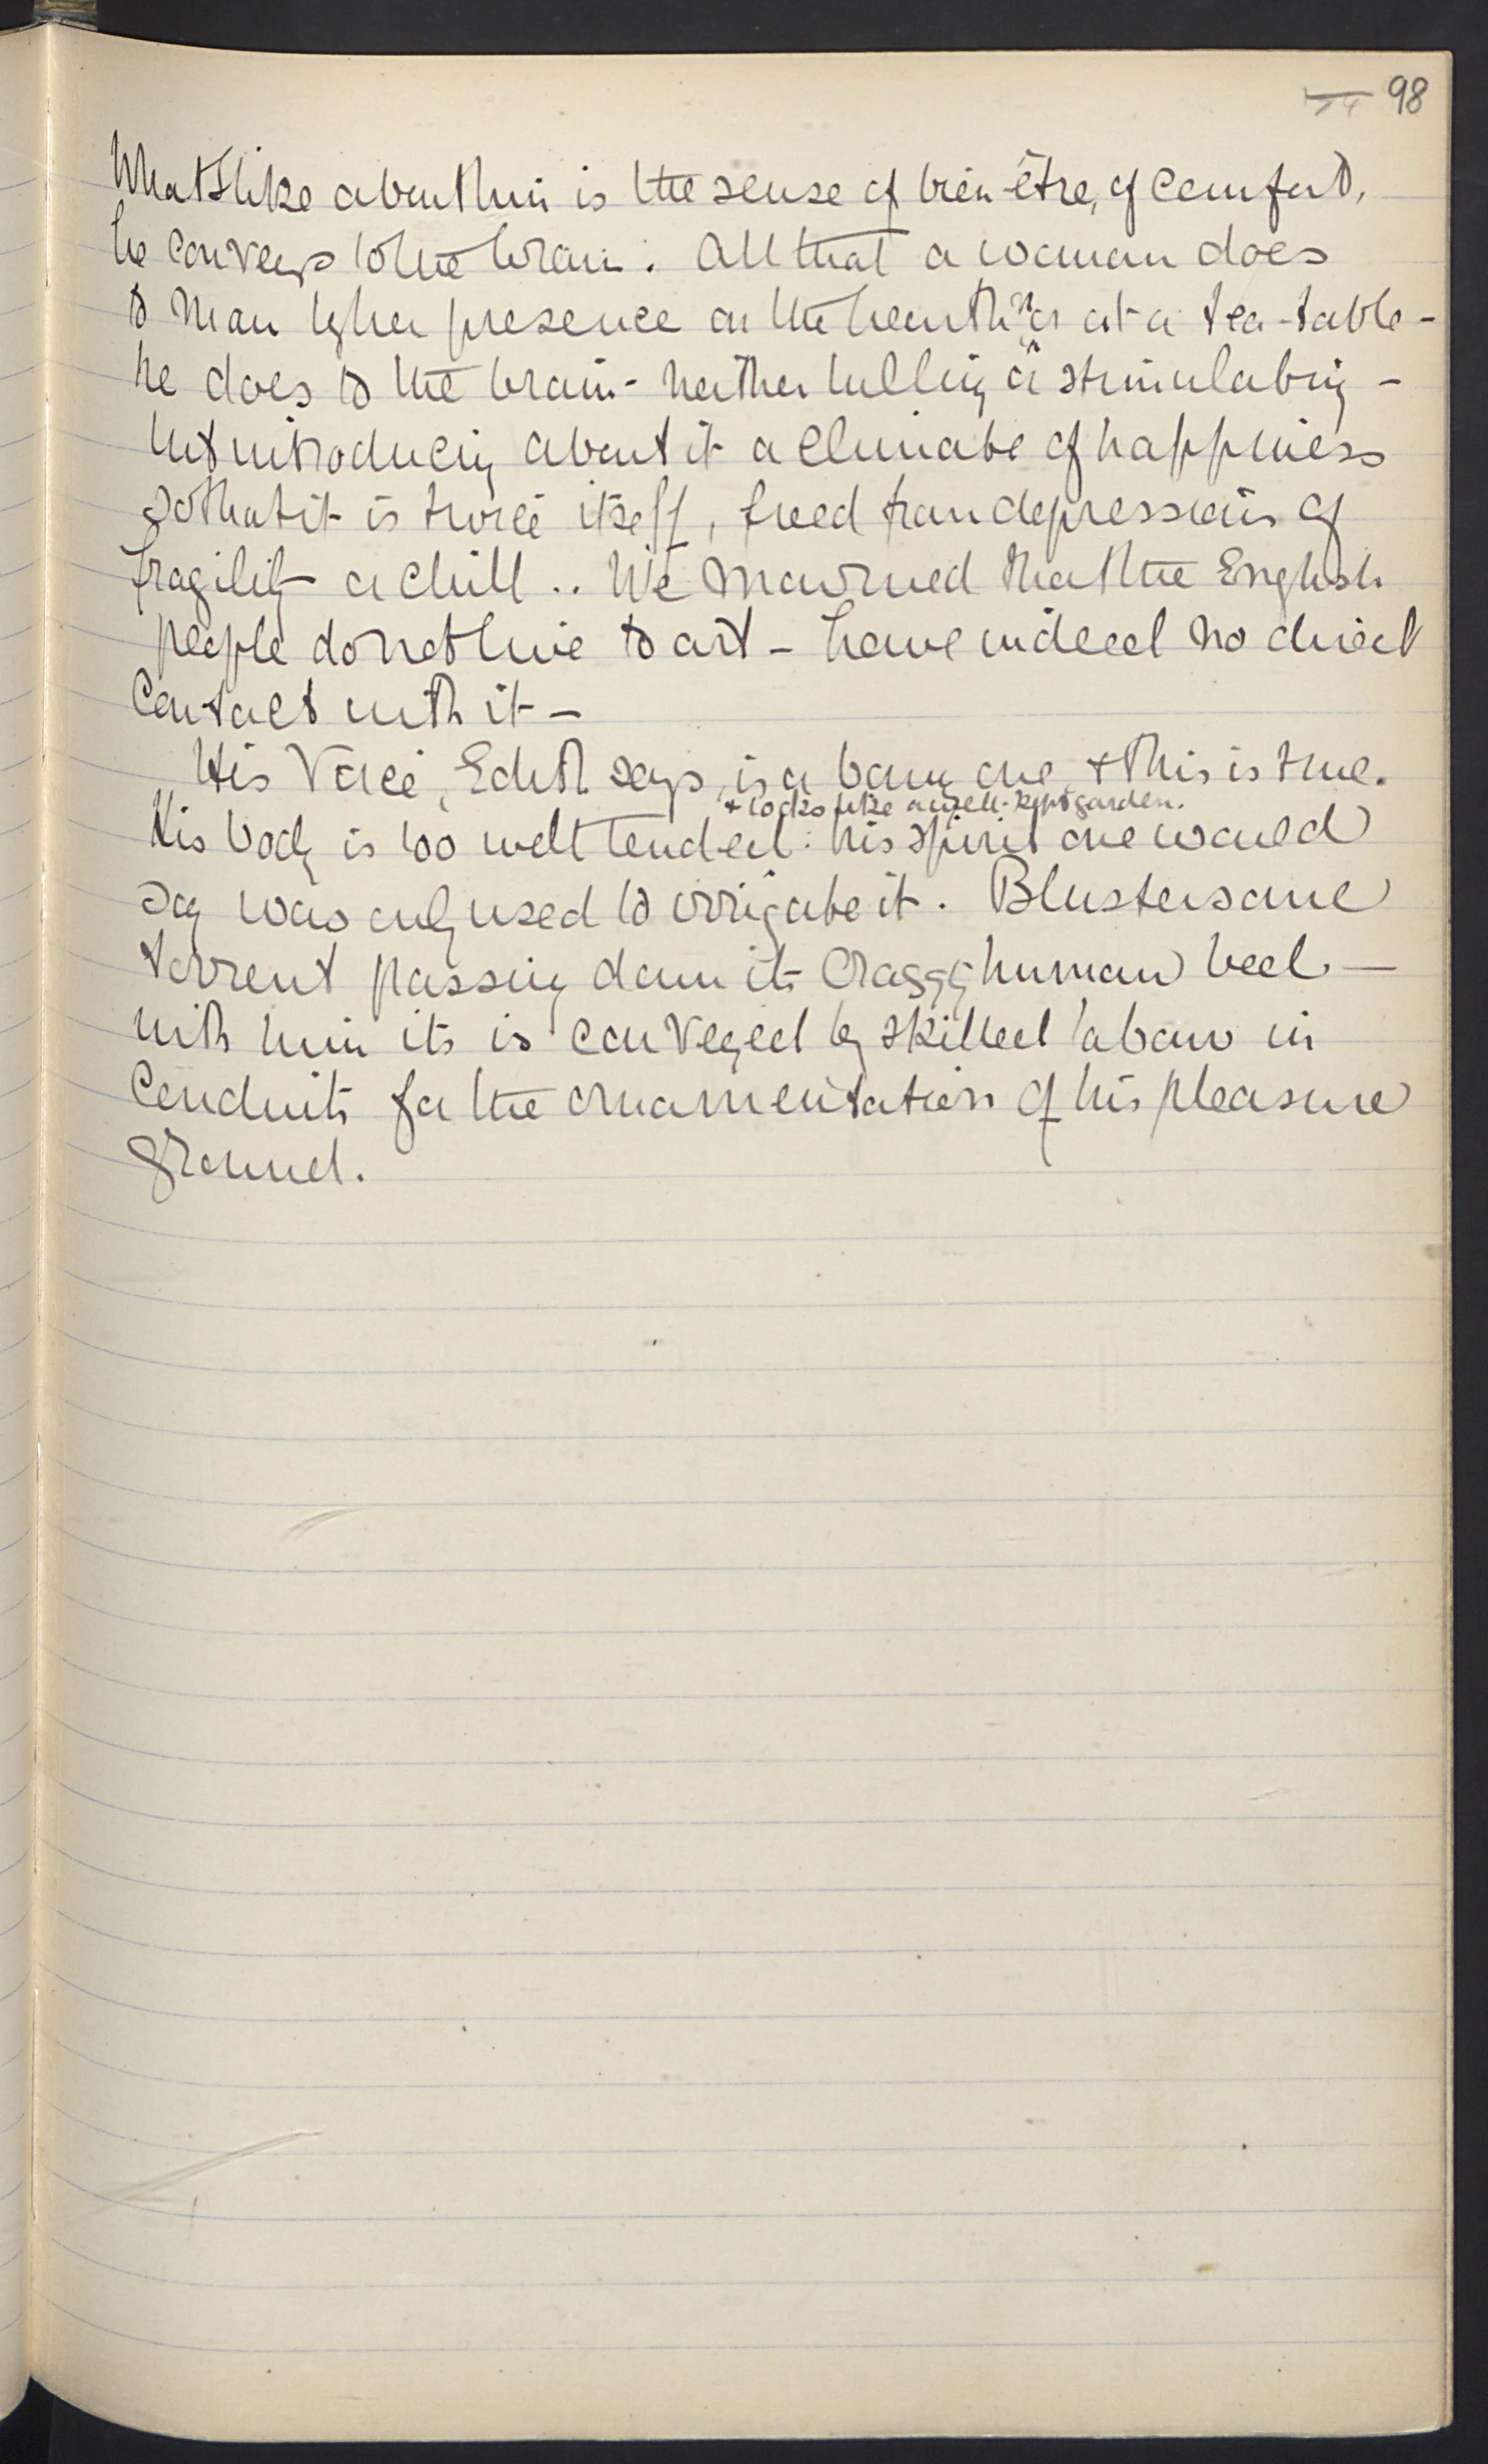 98
What I like about him is the sense of bien-être, of comfort,
he conveys to the brain. All that a woman does
to man by her presence on the hearth or at a tea-table -
he does to the brain - neither lulling or stimulating -
but introducing about it a climate of happiness
so that it is twice itself, freed from depressions of
fragility or chill .. We mourned that the English
people do not live to art - have indeed no direct
contact with it -
His voice, Edith says, is a bony one & this is true.
& looks like a well-kept garden.
His body is too well tended: his spirit one would
say was only used to irrigate it. Blustersome
torrent passing down its craggy human bed -
with him its is conveyed by skilled labour in
conduits for the ornamentation of his pleasure
ground.